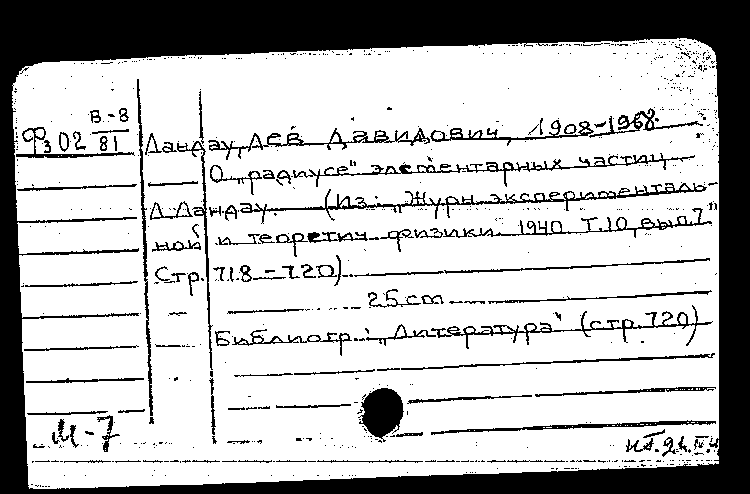 В.-8
Ф₃ 02 81
Ландау, Лев Давидович, 1908-1968.
О „радиусе" элементарных частиц
Л. Ландау. (Из: „Журн. эксперименталь-
ной и теоретич. физики. 1940. Т.10, вып.7"
Стр. 718-720)
25 cm
Библиогр.: „Литература" (стр.720)
М-7